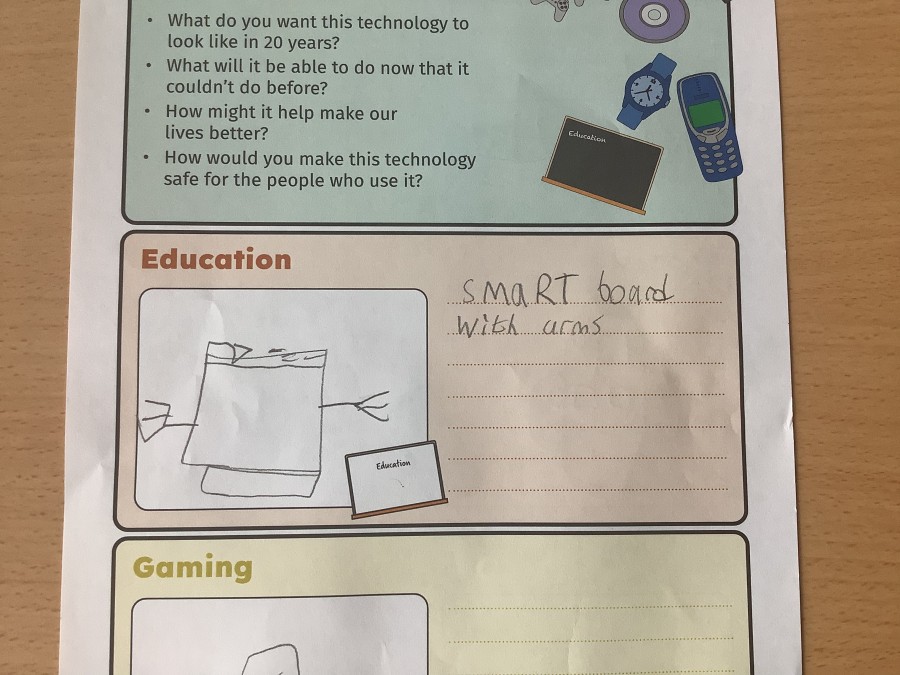 • What do you want this technology to
look like in 20 years?
• What will it be able to do now that it
couldn't do before?
• How might it help make our
lives better?
• How would you make this technology
safe for the people who use it?
Education
Education
SMaRT board
With arms
Education
Gaming